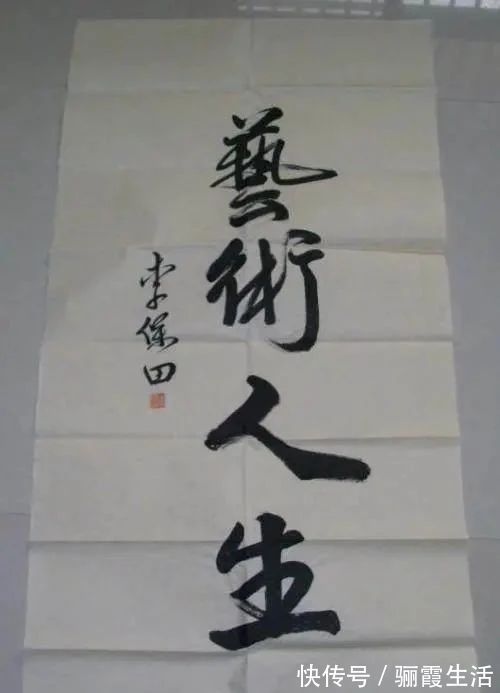 藝術人生
李保田
快传号／骊霞生活